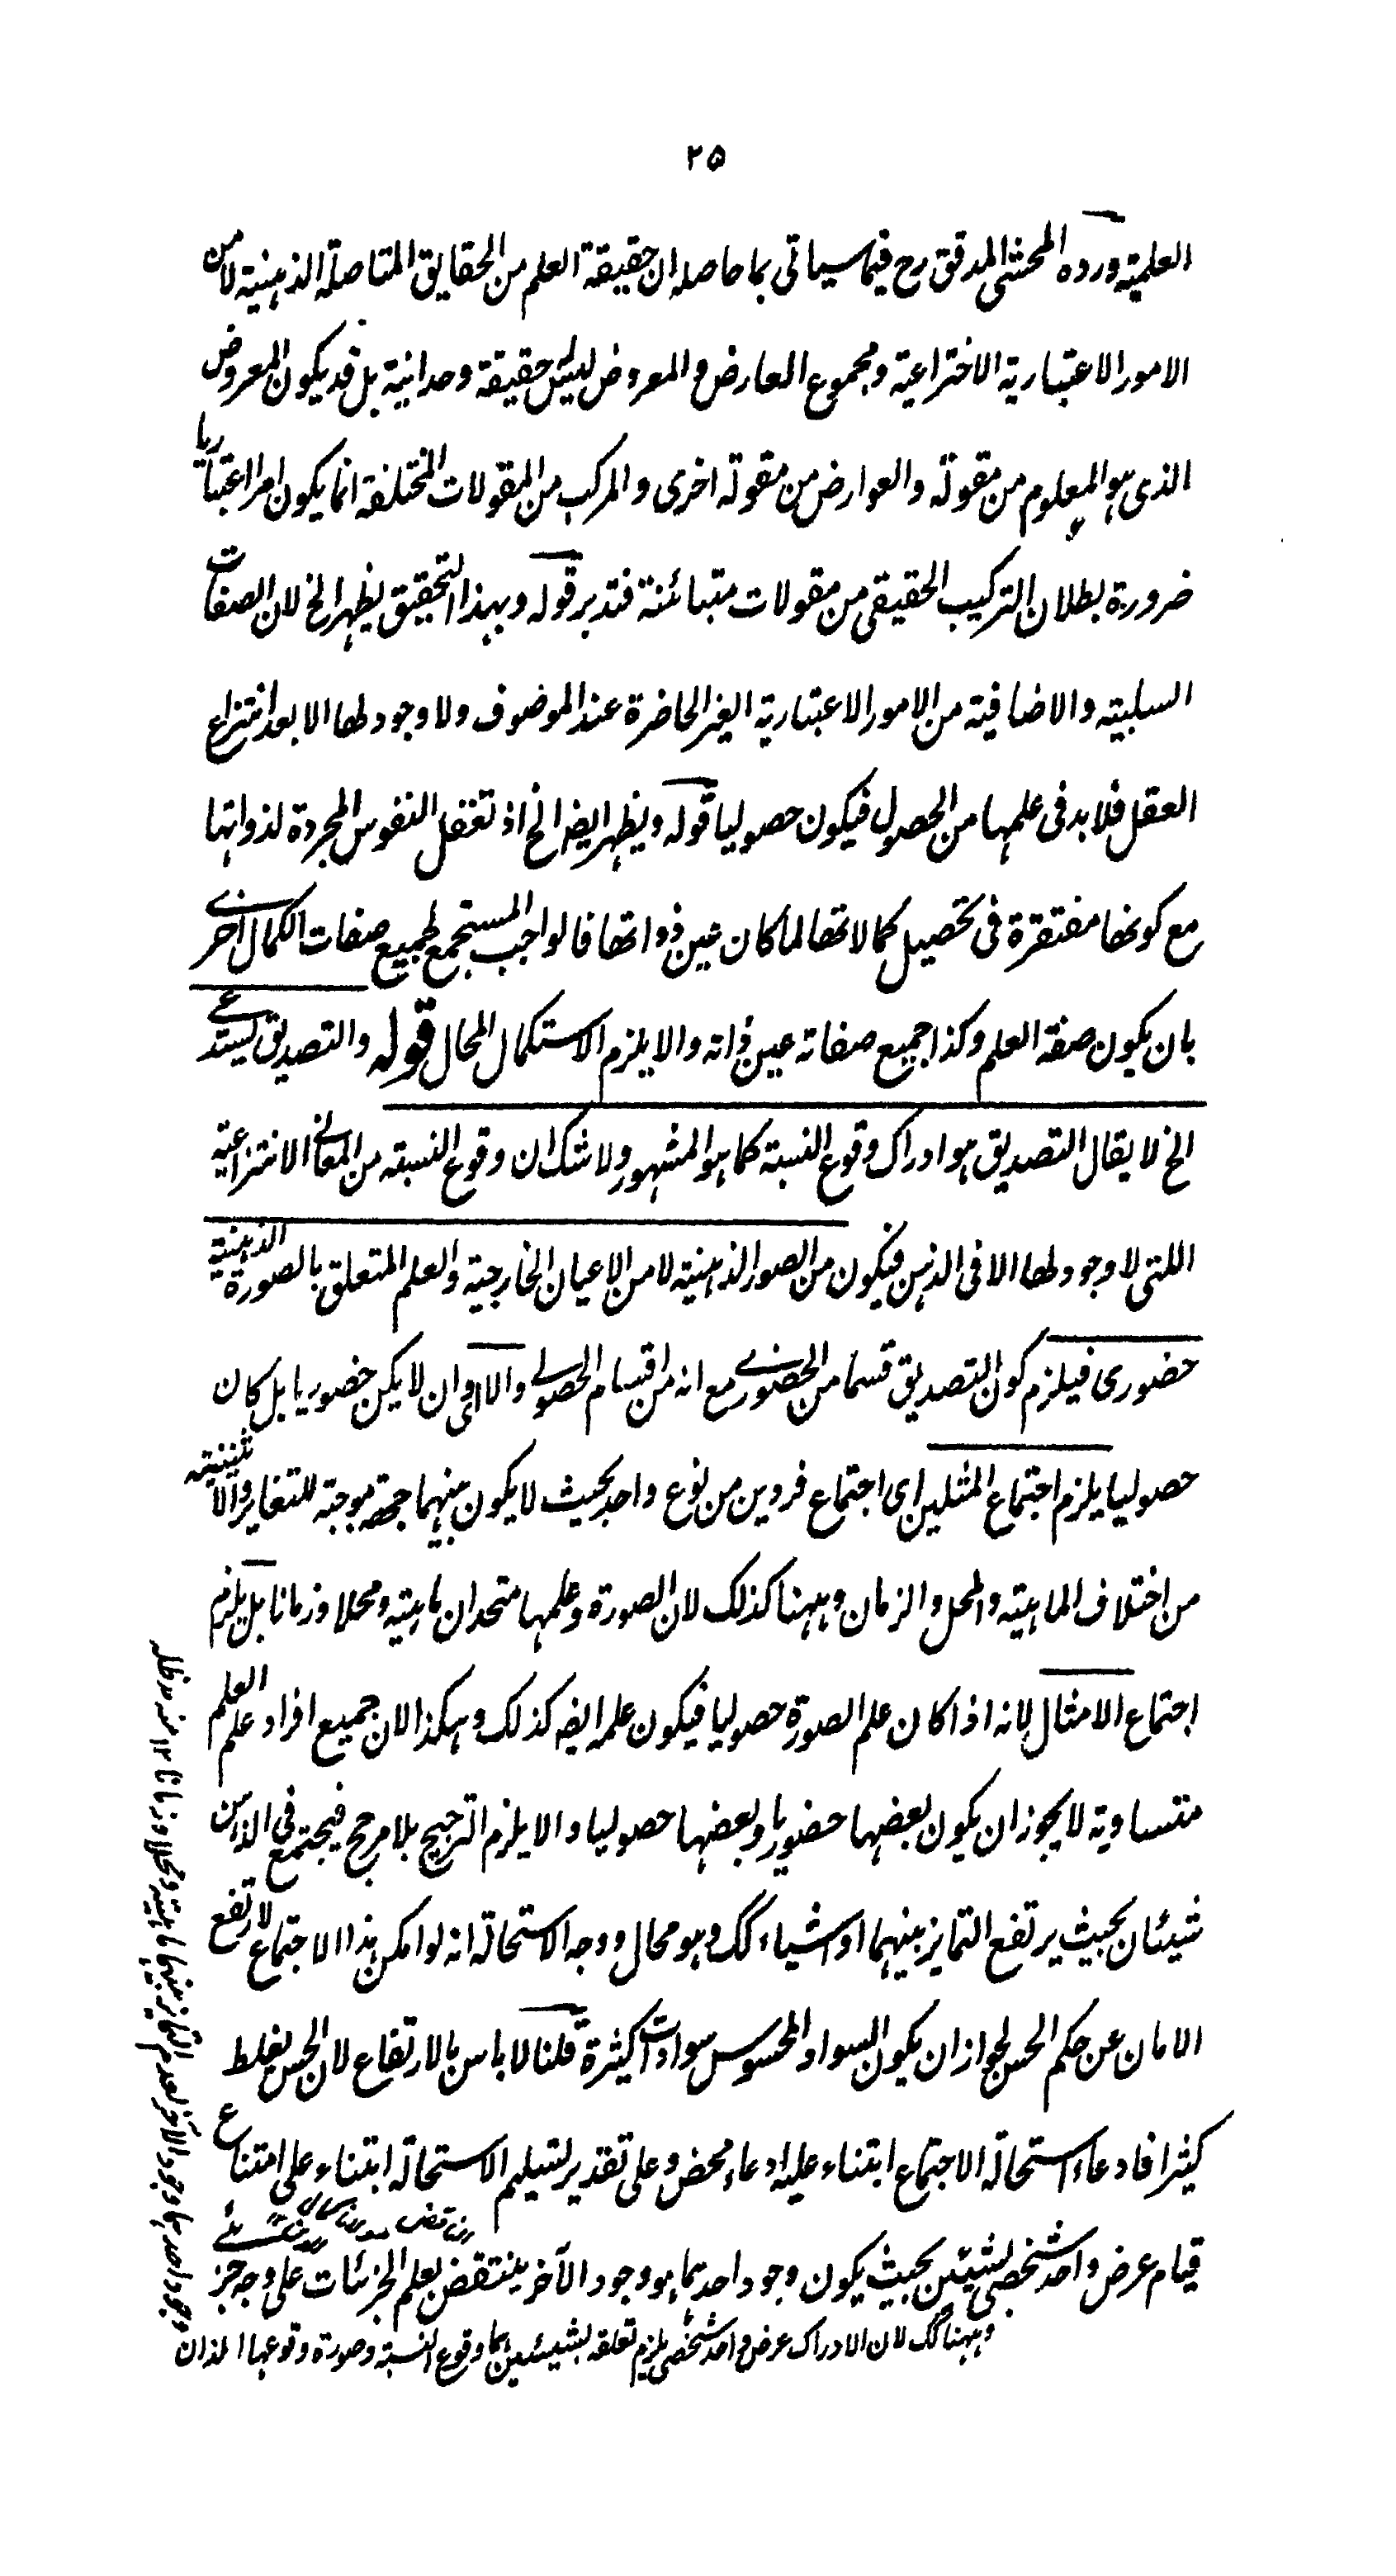 ٢٥
العلمية ورده المحشي المدقق رح فيما سياتى بما حاصله ان حقيقة العلم من الحقايق المتاصلة الذهنية لا من
الامور الاعتبارية الاختراعية ومجموع العارض والمعروض ليس حقيقة وحدانية بل قد يكون المعروض
الذى هو المعلوم من مقولة والعوارض من مقولة اخرى والمركب من المقولات المختلفة انما يكون امرا اعتباريا
ضرورة بطلان التركيب الحقيقى من مقولات متبائنة فتدبر قوله وبهذا التحقيق يظهر الخ لان الصفات
السلبية والاضافية من الامور الاعتبارية الغير الحاضرة عند الموصوف ولا وجود لها الا بعد انتزاع
العقل فلا بد فى علمها من الحصول فيكون حصوليا قوله ويظهر ايضا الخ اذ تعقل النفوس المجردة لذواتها
مع كونها مفتقرة فى تحصيل كمالاتها لما كان عين ذواتها فالواجب المستجمع لجميع صفات الكمال احرے
بان يكون صفة العلم وكذا جميع صفاته عين ذاته والا يلزم الاستكمال المحال قوله والتصديق يستدعے
الخ لا يقال التصديق هو ادراك وقوع النسبة كما هو المشهور ولا شك ان وقوع النسبته من المعانے الانتزاعية
اللتى لا وجود لها الا فى الذهن فيكون من الصور الذهنية لا من الاعيان الخارجية والعلم المتعلق بالصورة الذهنية
حضورى فيلزم كون التصديق قسما من الحضورے مع انه من اقسام الحصولے والا اى وان لا يكن حضوريا بل كان
حصوليا يلزم اجتماع المثلين اى اجتماع فردين من نوع واحد بحيث لا يكون بينهما جهة موجبة للتغاير والاثنينية
من اختلاف الماهية والمحل والزمان وههنا كذلك لان الصورة وعلمها متحدان ماهية ومحلا وزمانا بل يلزم
اجتماع الامثال لانه اذا كان علم الصورة حصوليا فيكون علمه ايضه كذلك وهكذا لان جميع افراد علم العلم
متساوية لا يجوز ان يكون بعضها حضوريا وبعضها حصوليا والا يلزم الترجيح بلا مرجح فيجتمع فى الذهن
شيئان بحيث يرتفع التمايز بينهما او اشياء كك وهو محال ووجه الاستحالة انه لو امكن هذا الاجتماع لارتفع
الامان عن حكم الحس لجواز ان يكون السواد المحسوس سوادات كثيرة قلنا لا باس بالارتفاع لان الحس يغلط
كثيرا فادعاء استحالة الاجتماع ابتناء عليه ادعاء محض وعلى تقدير تسليم الاستحالة ابتناء على امتناع
قيام عرض واحد شخصى بشيئين بحيث يكون وجود احدهما هو وجود الآخر ينتقض بعلم الجزئيات على وجه جزئے
وههنا كك لان الادراك عرض واحد شخصى يلزم تعلقه بشيئين هما وقوع النسبة وصورة وقوعها اللذان
وجود احدهما وجود الآخر لعدم التمايز بينهما ماهية ومحلا وزمانا ١٢ منه مدظله